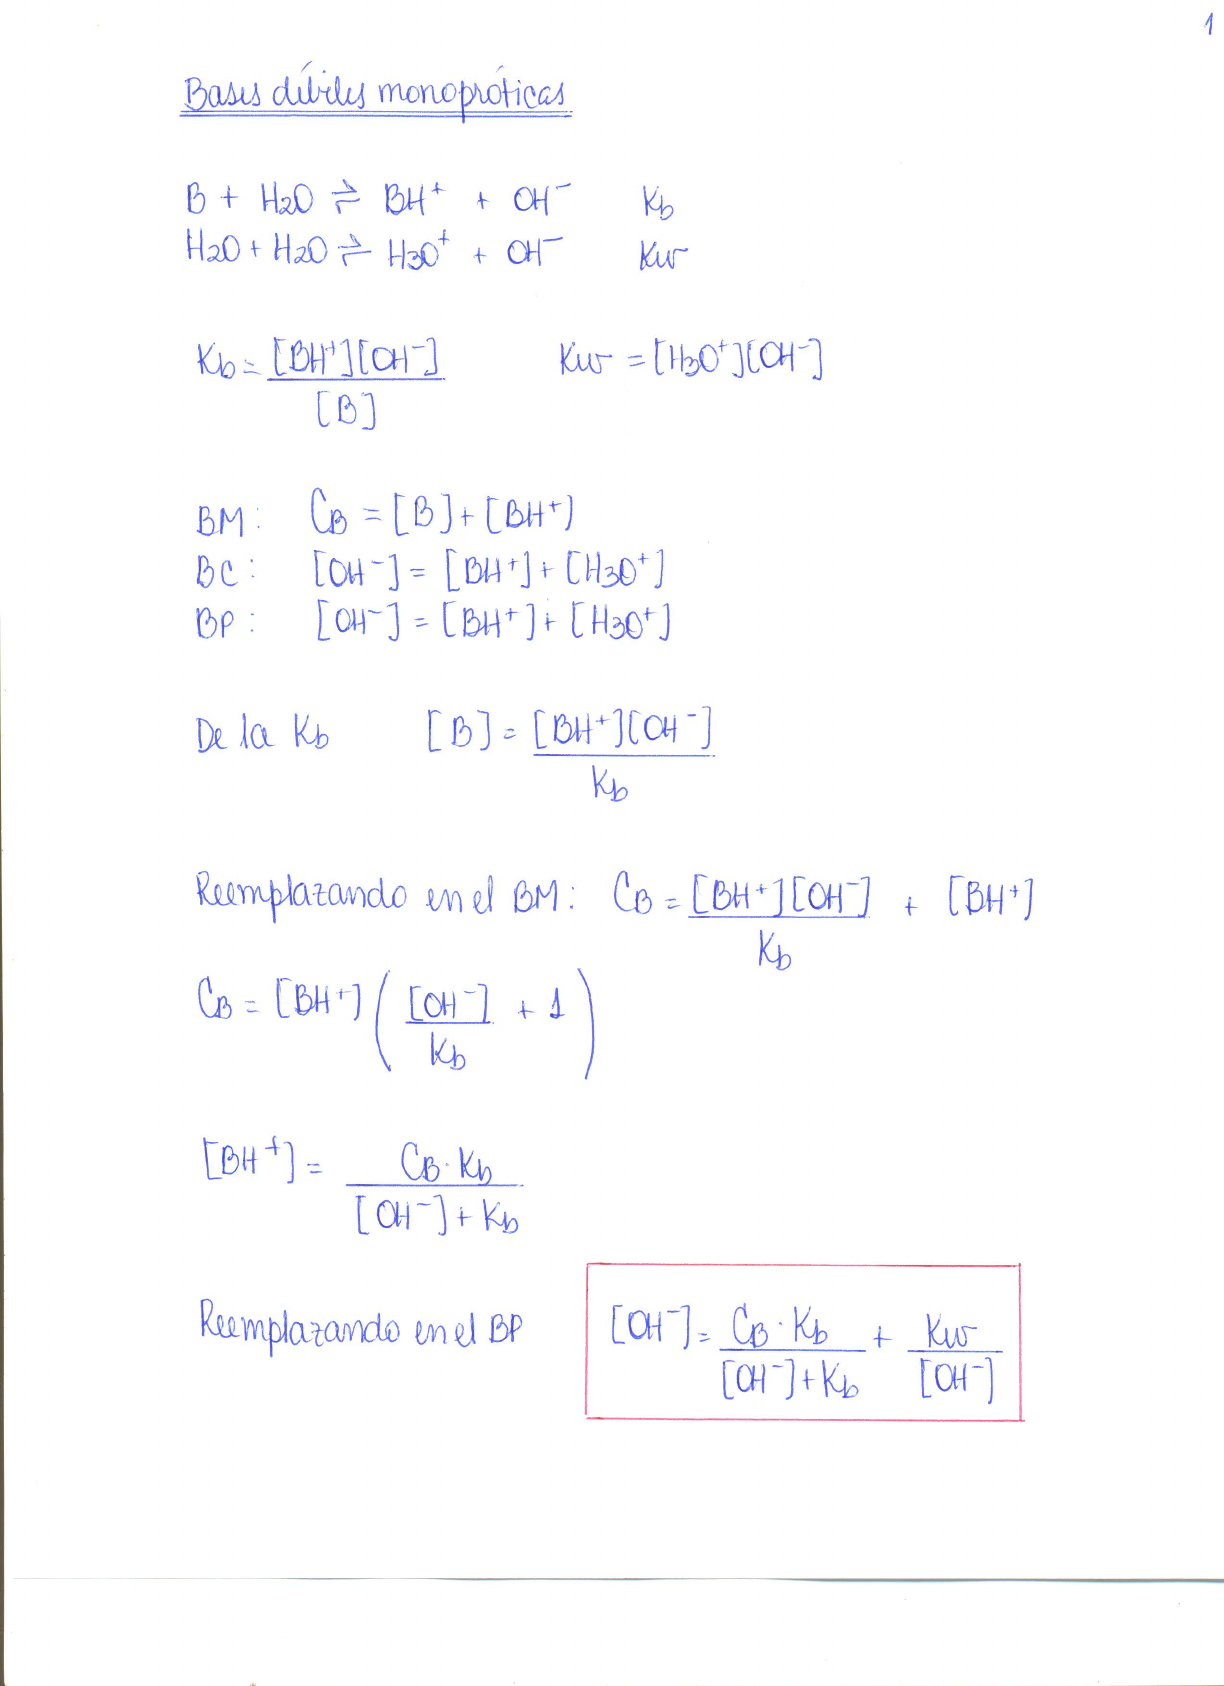 1
Bases débiles monopróticas
B + H2O ⇌ BH⁺ + OH⁻ Kb
H2O + H2O ⇌ H3O⁺ + OH⁻ Kw
Kb = [BH⁺][OH⁻] / [B] Kw = [H3O⁺][OH⁻]
BM: CB = [B] + [BH⁺]
BC: [OH⁻] = [BH⁺] + [H3O⁺]
BP: [OH⁻] = [BH⁺] + [H3O⁺]
De la Kb [B] = [BH⁺][OH⁻] / Kb
Reemplazando en el BM: CB = [BH⁺][OH⁻] / Kb + [BH⁺]
CB = [BH⁺] ( [OH⁻] / Kb + 1 )
[BH⁺] = CB · Kb / [OH⁻] + Kb
Reemplazando en el BP [OH⁻] = CB · Kb / [OH⁻] + Kb + Kw / [OH⁻]